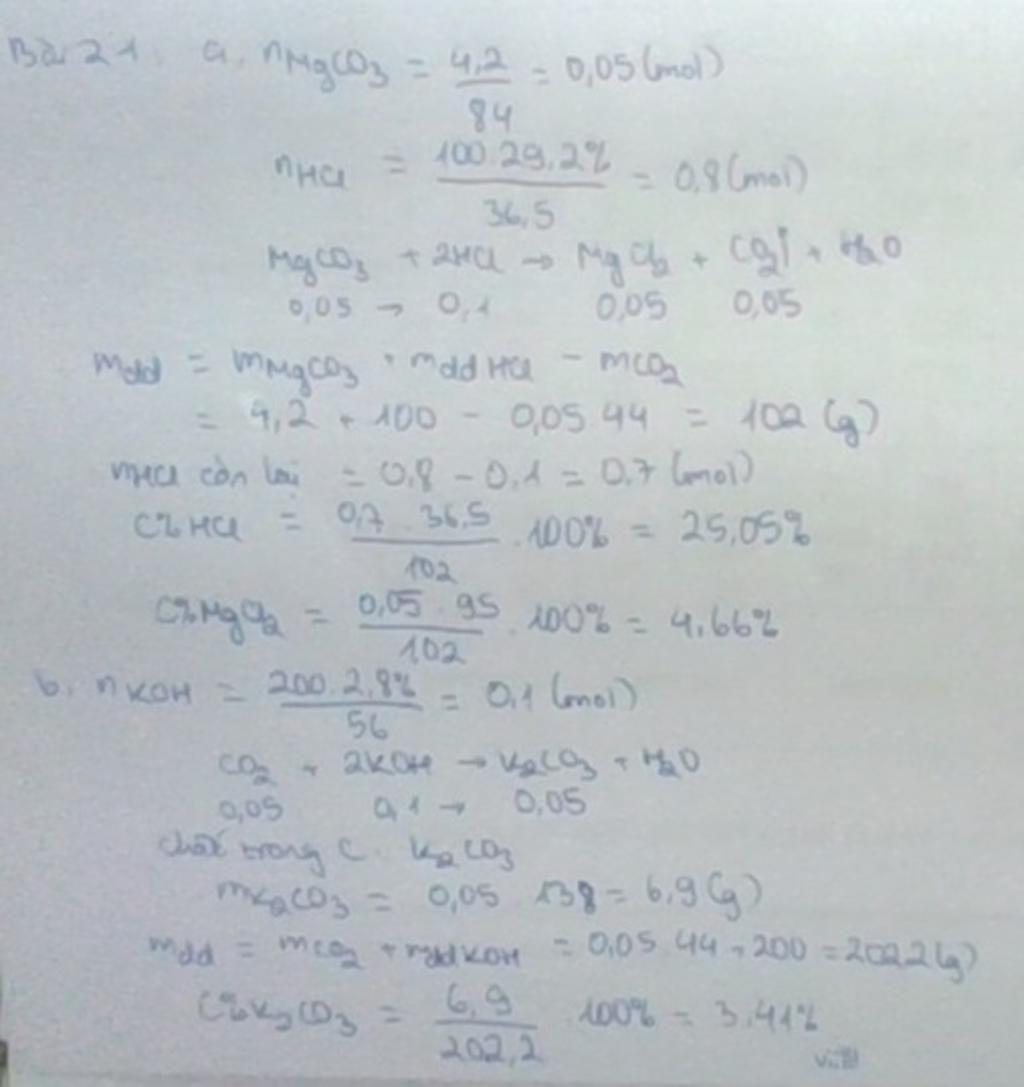 Bài 21. a, nMgCO3 = 4,2/84 = 0,05 (mol)
nHCl = 100.29,2%/36,5 = 0,8 (mol)
MgCO3 + 2HCl → MgCl2 + CO2↑ + H2O
0,05 → 0,1 0,05 0,05
mdd = mMgCO3 + mdd HCl - mCO2
= 4,2 + 100 - 0,05.44 = 102 (g)
nHCl còn lại = 0,8 - 0,1 = 0,7 (mol)
C%HCl = 0,7.36,5/102 . 100% = 25,05%
C%MgCl2 = 0,05.95/102 . 100% = 4,66%
b, nKOH = 200.2,8%/56 = 0,1 (mol)
CO2 + 2KOH → K2CO3 + H2O
0,05 0,1 → 0,05
Chất trong C: K2CO3
mK2CO3 = 0,05.138 = 6,9 (g)
mdd = mCO2 + mddKOH = 0,05.44 + 200 = 202,2 (g)
C%K2CO3 = 6,9/202,2 . 100% = 3,41%